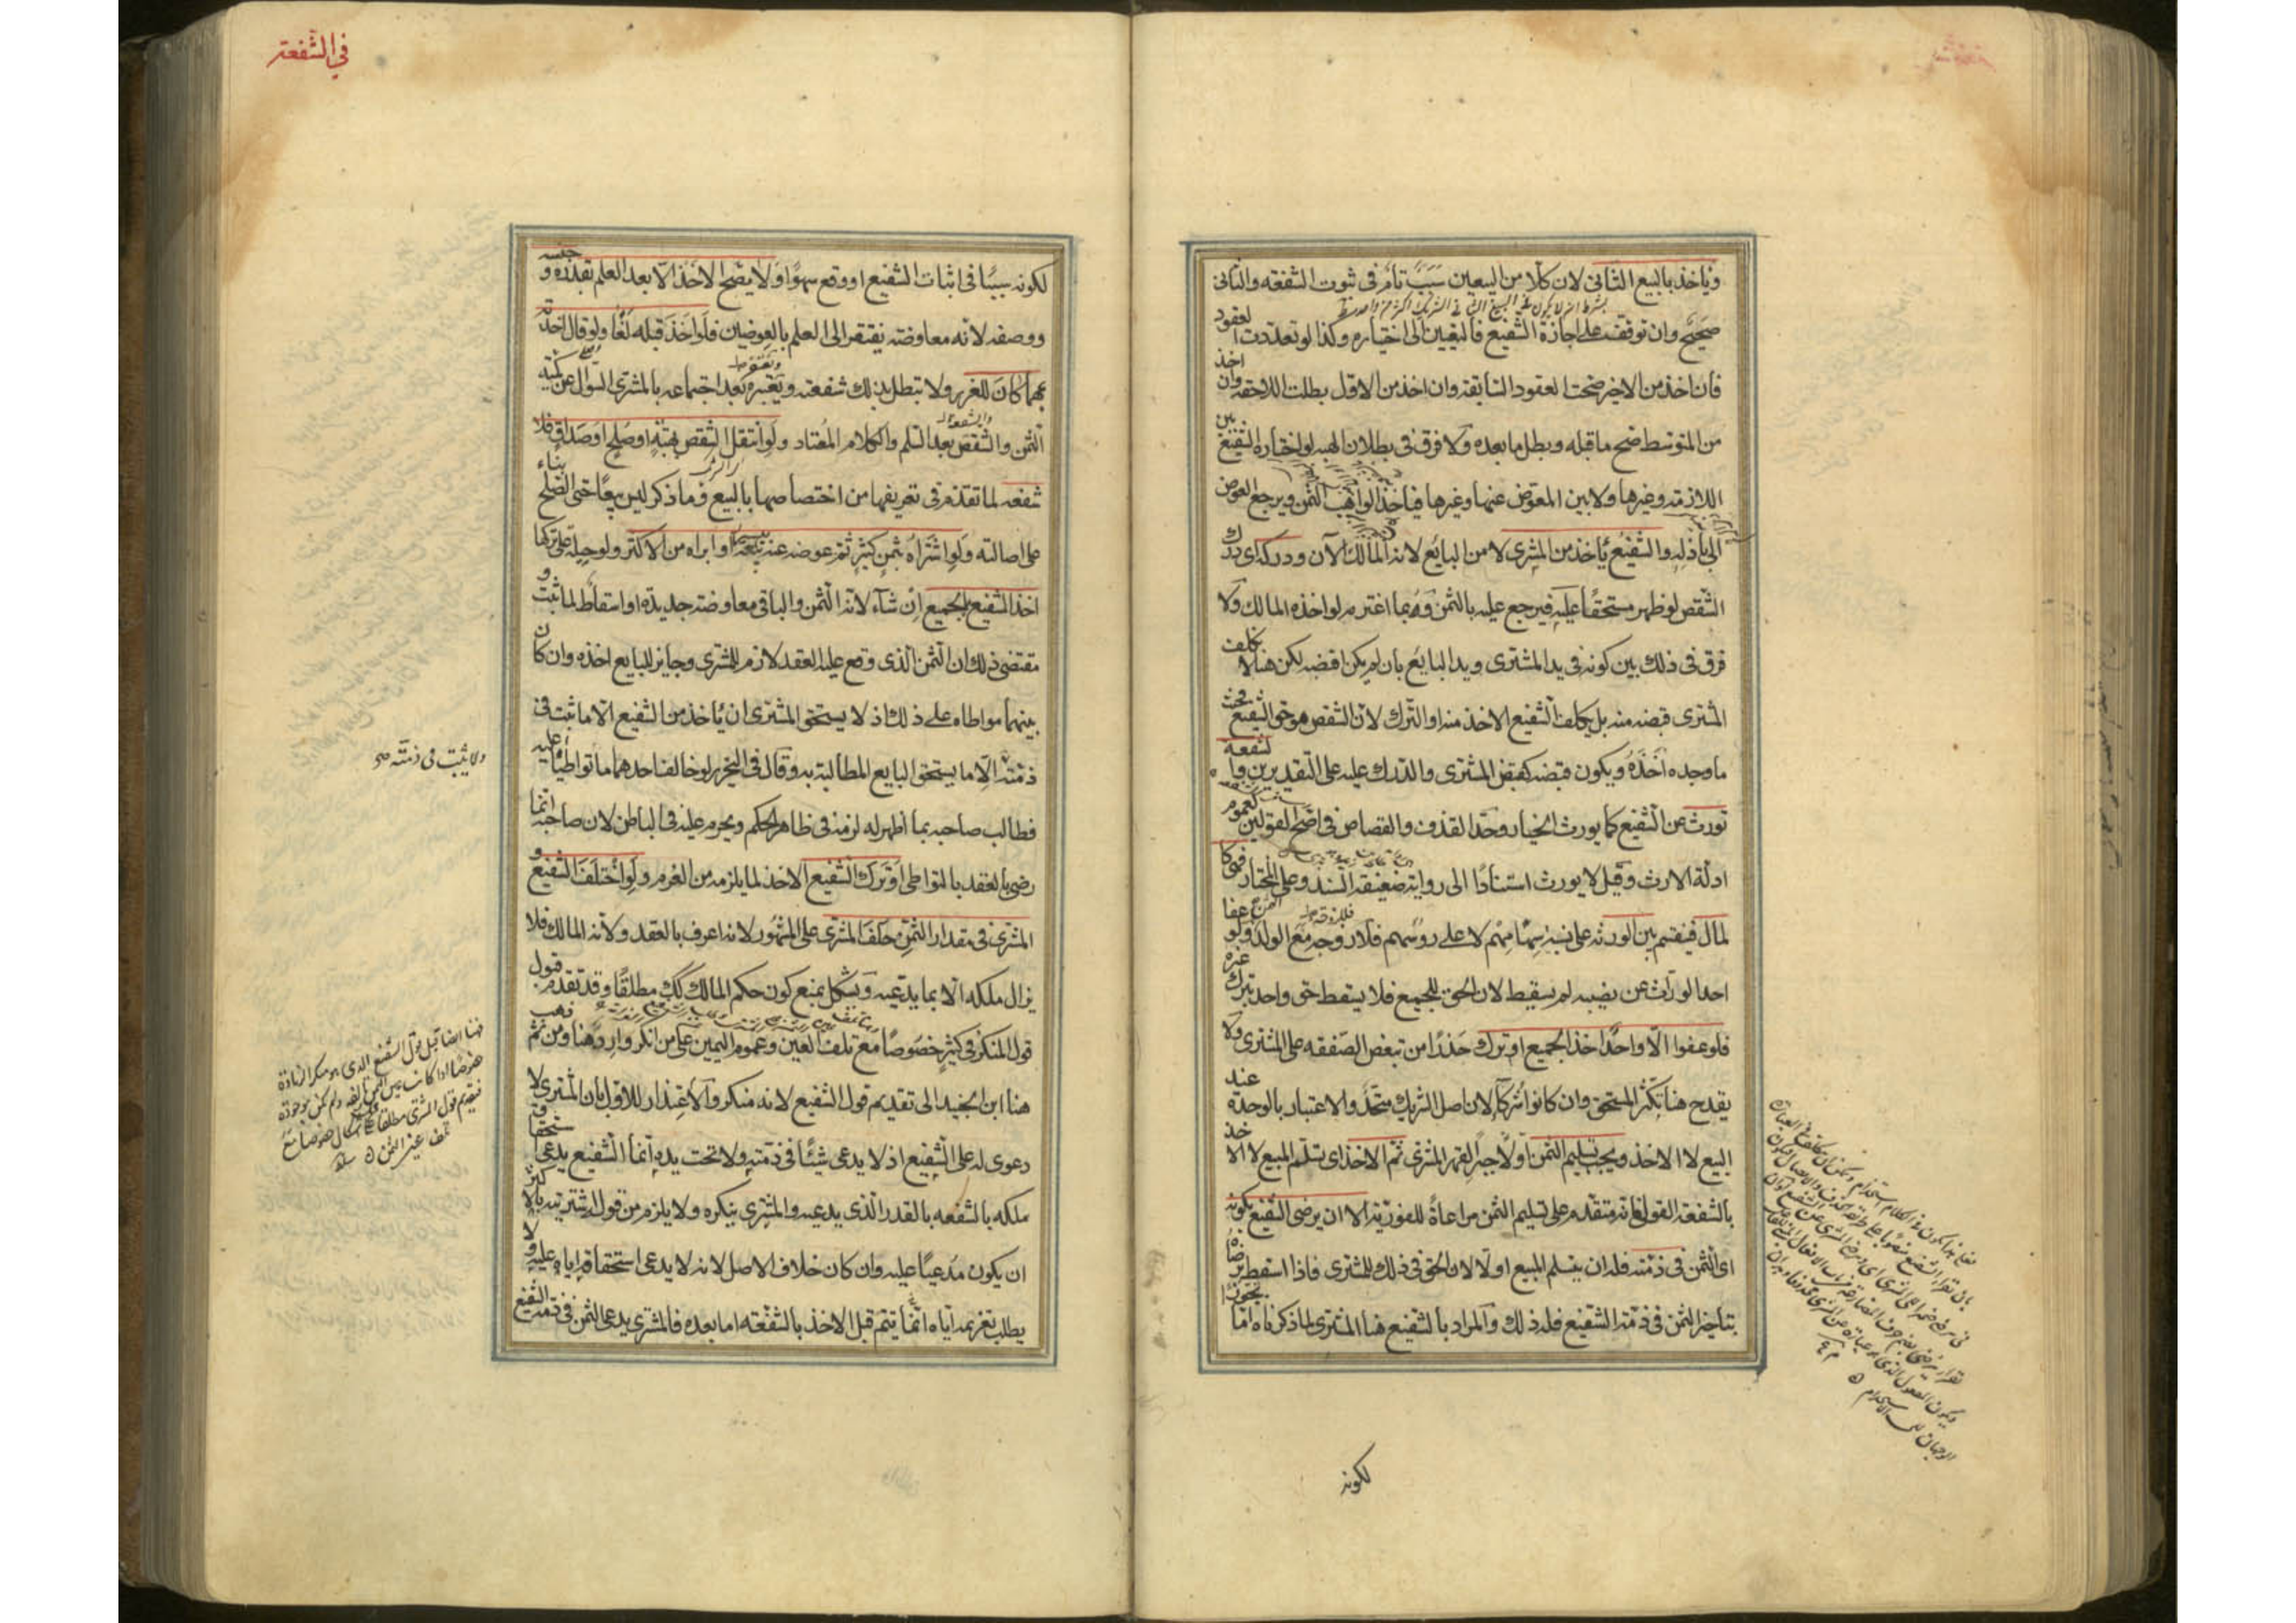 ويأخذ بالبيع الثاني لان كلا من البيعين سبب تام في ثبوت الشفعه والثاني
صحيح وان توقف على اجازة الشفيع فالتعيين الى اختياره وكذا لو تعددت العقود
فان اخذ من الاخير صحت العقود السابقة وان اخذ من الاول بطلت اللاحقه وان اخذ
من المتوسط صح ما قبله وبطل ما بعده ولا فرق في بطلان الهبه لو اختاره الشفيع بين
اللازمه وغيرها ولا بين المعوض عنها وغيرها فيأخذ الواهب الثمن ويرجع العوض
الى باذله والشفيع يأخذ من المشترى لا من البايع لانه المالك الآن ودركه اى درك
الشقص لو ظهر مستحقا عليه فيرجع عليه بالثمن وبما اغترمه لو اخذه المالك ولا
فرق في ذلك بين كونه في يد المشترى ويد البايع بان لم يكن اقبضه لكن هنا لا يكلف
المشترى قبضه منه بل يكلف الشفيع الاخذ منه او الترك لان الشقص هو حق الشفيع فحيث
ما وجده اخذه ويكون قبضه كقبض المشترى والدرك عليه على التقديرين والشفعة
تورث عن الشفيع كما يورث الخيار وحد القذف والقصاص في اصح القولين لعموم
ادلة الارث وقيل لا يورث استنادا الى رواية ضعيفة السند وعلى المختار فهى كا
لمال فيقسم بين الورثه على نسبة سهامهم لا على رؤسهم فللزوجه مع الولد الثمن ولو عفا
احد الوراث عن نصيبه لم يسقط لان الحق للجميع فلا يسقط حق واحد بترك غيره
فلو عفوا الا واحدا اخذ الجميع او ترك حذرا من تبعض الصفقه على المشترى ولا
يقدح هنا تكثر المستحق وان كانوا شركآء لان اصل الشريك متحد والاعتبار بالوحدة عند
البيع لا الاخذ ويجب تسليم الثمن اولا جبرا لقهر المشترى ثم الاخذ اى تسلم المبيع لا الاخذ
بالشفعة القولى فانه متقدم على تسليم الثمن مراعاة للفورية الا ان يرضى الشفيع بكونه
اى الثمن في ذمته فله ان يتسلم المبيع اولا لان الحق في ذلك للمشترى فاذا اسقطه برضاه
بتأخير الثمن في ذمة الشفيع فله ذلك والمراد بالشفيع هنا المشترى لما ذكرناه اما تجوزا
لكونه
في الشفعة
لكونه سببا في اثبات الشفيع او وقع سهوا ولا يصح الاخذ الا بعد العلم بقدره وجنسه
ووصفه لانه معاوضة يفتقر الى العلم بالعوضين فلو اخذ قبله لغا ولو قال اخذته
بمهما كان للغرر ولا تبطل بذلك شفعته ويعتبر بعد اجتماعه بالمشترى السؤال عن كمية
الثمن والشقص بعد السلم والكلام المعتاد ولو انتقل الشقص بهبة او صلح او صداق فلا
شفعه لما تقدم في تعريفها من اختصاصها بالبيع وما ذكر ليس بيعا حتى الصلح بناء
على اصالته ولو اشتراه بثمن كثير ثم عوضه عنه بيسير او ابراه من الاكثر ولو حيلة على تركها
اخذ الشفيع بالجميع ان شاء لانه الثمن والباقي معاوضة جديدة او اسقاط لما ثبت و
مقتضى ذلك ان الثمن الذى وقع عليه العقد لازم للمشترى وجايز للبايع اخذه وان كان
بينهما مواطاه على ذلك اذ لا يستحق المشترى ان يأخذ من الشفيع الا ما ثبت في
ذمته الا ما يستحق البايع المطالبة به وقال في التحرير لو خالف احدهما ما تواطيا عليه
ولا يثبت في ذمته صح
فطالب صاحبه بما اظهر له لزمه في ظاهر الحكم ويحرم عليه في الباطن لان صاحبه انما
رضى بالعقد بالتواطى او ترك الشفيع الاخذ لما يلزمه من الغرم ولو اختلف الشفيع و
المشترى في مقدار الثمن حلف المشترى على المشهور لانه اعرف بالعقد ولانه المالك فلا
يزال ملكه الا بما يدعيه ويشكل بمنع كون حكم المالك كك مطلقا وقد تقدم قول
قول المنكر في كثير خصوصا مع تلف العين وعموم اليمين على من انكر وارد هنا ومن ثم ذهب
هنا ابن الجنيد الى تقديم قول الشفيع لانه منكر والاعتذار للاول بان المشترى لا
دعوى له على الشفيع اذ لا يدعى شيئا في ذمته ولا تحت يده انما الشفيع يدعى استحقاق
ملكه بالشفعه بالقدر الذى يدعيه والمشترى ينكره ولا يلزم من قوله اشتريته بالاكثر
ان يكون مدعيا عليه وان كان خلاف الاصل لانه لا يدعى استحقاقه اياه عليه ولا
يطلب تغريمه اياه انما يتم قبل الاخذ بالشفعه اما بعده فالمشترى يدعى الثمن في ذمة الشفيع